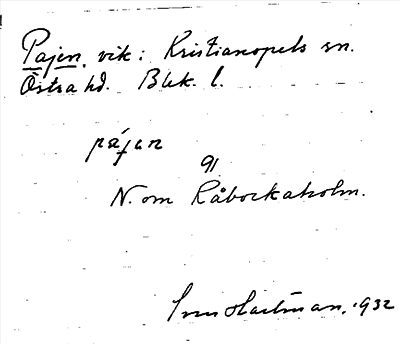 Pajen, vik: Kristianopels sn.
Östra hd. Blek. l.
pájan
91
N. om Råbockaholm.
Sven Hartman, 1932